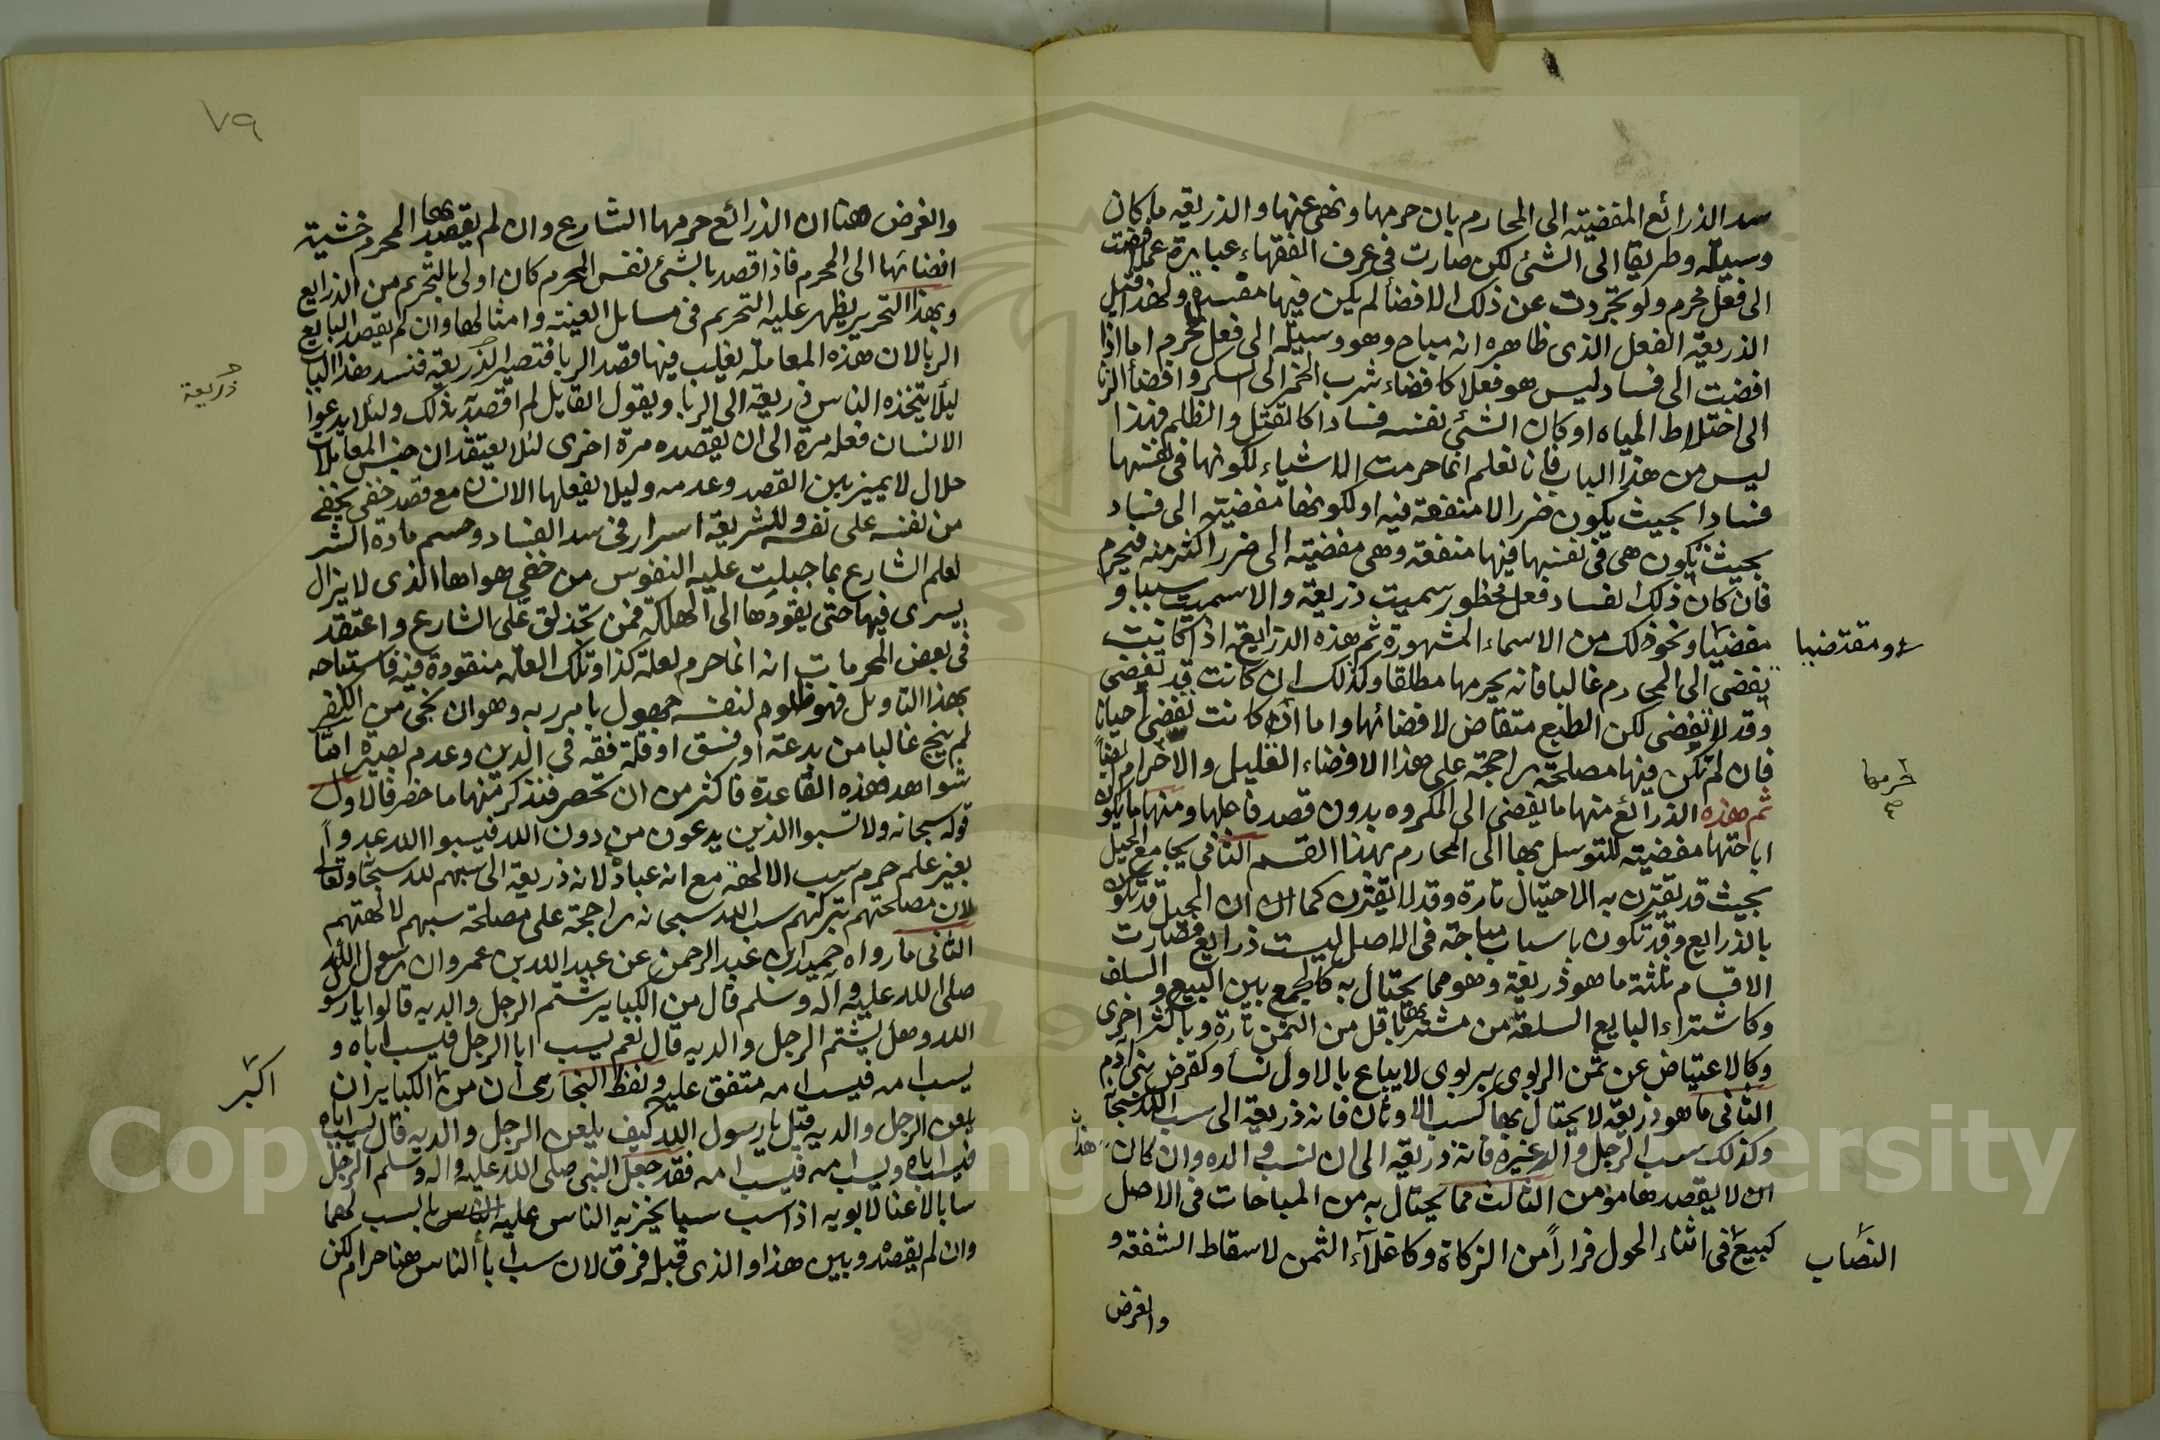 سد الذرائع المفضيته الى المحارم بان حرمها ونهى عنها والذريعه ما كان
وسيلة وطريقا الى الشئ لكن صارت في عرف الفقهاء عبارة عما افضت
الى فعل محرم ولو تجردت عن ذلك الافضا لم يكن فيها مفسدة ولهذا قيل
الذريعة الفعل الذى ظاهره انه مباح وهو وسيلة الى فعل محرم اما اذا
افضت الى فساد ليس هو فعلا كافضاء شرب الخمر الى السكر وافضأ الزنا
الى اختلاط المياه او كان الشئ نفسه فسادا كالقتل والظلم فهذا
ليس من هذا الباب فانا نعلم انما حرمت الاشياء لكونها في نفسها
فسادا بحيث يكون ضررا لا منفعة فيه او لكونها مفضيته الى فساد
بحيث تكون هى فى نفسها فيها منفعة وهى مفضيته الى ضرر اكثر منه فيحرم
فان كان ذلك الفساد فعل محظور سميت ذريعة والا سميت سببا و
مفضيا ونحو ذلك من الاسماء المشهورة ثم هذه الذرايع اذا كانت
ومقتضيا
تفضى الى المحارم غالبا فانه يحرمها مطلقا وكذلك ان كانت قد تفضى
وقد لا تفضى لكن الطبع متقاض لافضائها واما ان كانت تفضى احيانا
فان لم تكن فيها مصلحة راجحة على هذا الافضاء القليل والا حرام ايضاً
حرمها
ثم هذه الذرائع منها ما يفضى الى المكروه بدون قصد فاعلها ومنها ما يكون
اباحتها مفضيته للتوسل بها الى المحارم بهذا القسم الثانى يجامع الحيل
بحيث قد يقترن به الاحتيال تارة وقد لا يقترن كما ان الحيل قد تكون
بالذرايع وقد تكون باسباب مباحة فى الاصل ليست ذرايع فصارت
الاقسام ثلثة ما هو ذريعة وهو مما يحتال به كالجمع بين البيع والسلف
وكاشتراء البايع السلعة من مشتريها باقل من الثمن تارة وباكثر اخرى
وكالاعتياض عن ثمن الربوى بربوى لا يباع بالاول نسأ وكقرض بنى آدم
الثانى ما هو ذريعة لا يحتال بها كسب الاوثان فانه ذريعة الى سب الله سبحانه
وكذلك سب الرجل والد غيره فانه ذريعة الى ان يسب والده وان كان هذا
ان لا يقصدها مؤمن الثالث مما يحتال به من المباحات فى الاصل
كبيع فى اثناء الحول فراراً من الزكاة وكاغلآء الثمن لاسقاط الشفعه و
النصاب
والغرض
٧٩
والغرض هنا ان الذرائع حرمها الشارع وان لم يقصد بها المحرم خشية
افضائها الى المحرم فاذا قصد بالشئ نفس المحرم كان اولى بالتحريم من الذرايع
وبهذا التحرير يظهر عليه التحريم فى مسايل العينه وامثالها وان لم يقصد البايع
الربا لان هذه المعاملة يغلب فيها قصد الربا فتصير الذريعه فنسد هذا الباب
ذريعة
ليلا يتخذه الناس ذريعة الى الربا ويقول القايل لم اقصد به ذلك ولئلا يدعوا
الانسان فعله مرة الى ان يقصده مرة اخرى لئلا يعتقد ان جنس المعاملات
حلال لا يميز بين القصد وعدمه وليلا يفعلها الانسان مع قصد خفى يخفى
من نفسه على نفسه وللشريعة اسرار فى سد الفساد وحسم مادة الشر
لعلم الشارع بما جبلت عليه النفوس من خفى هواها الذى لا يزال
يسرى فيها حتى يقودها الى الهلكة فمن تحذلق على الشارع واعتقد
فى بعض المحرمات انه انما حرم لعلة كذا وتلك العلة منقودة فيه فاستباحه
بهذا التاويل فهو ظلوم لنفسه جهول بامر ربه وهو ان نجى من الكفر
لم ينج غالبا من بدعة او فسق او قلة فقه فى الدين وعدم بصيرة اما
شواهد هذه القاعدة فاكثر من ان تحصر فنذكر منها ما حضر فالاول
قوله سبحانه ولا تسبوا الذين يدعون من دون الله فيسبوا الله عدواً
بغير علم حرم سب الالهة مع انه عبادة لانه ذريعة الى سبهم لله سبحانه وتعالى
لان مصلحتهم بتركهم سب الله سبحانه راجحة على مصلحة سبهم لالهتهم
الثانى ما رواه حميد ابن عبد الرحمن عن عبد الله بن عمرو ان رسول الله
صلى الله عليه وآله وسلم قال من الكباير شتم الرجل والديه قالوا يا رسول
الله وهل يشتم الرجل والديه قال نعم يسب ابا الرجل فيسب اباه و
يسب امه فيسب امه متفق عليه ولفظ البخارى ان من الكباير ان
اكبر
يلعن الرجل والديه قيل يا رسول الله كيف يلعن الرجل والديه قال يسب اباه
فيسب اباه ويسب امه فيسب امه فقد جعل النبى صلى الله عليه واله وسلم الرجل
سابا لاعنا لابويه اذا سب سبا يجزيه الناس عليه بالسب لهما
وان لم يقصده وبين هذا والذى قبله فرق لان سب ابأ الناس هنا حرام لكن
Copyright © King Saud University